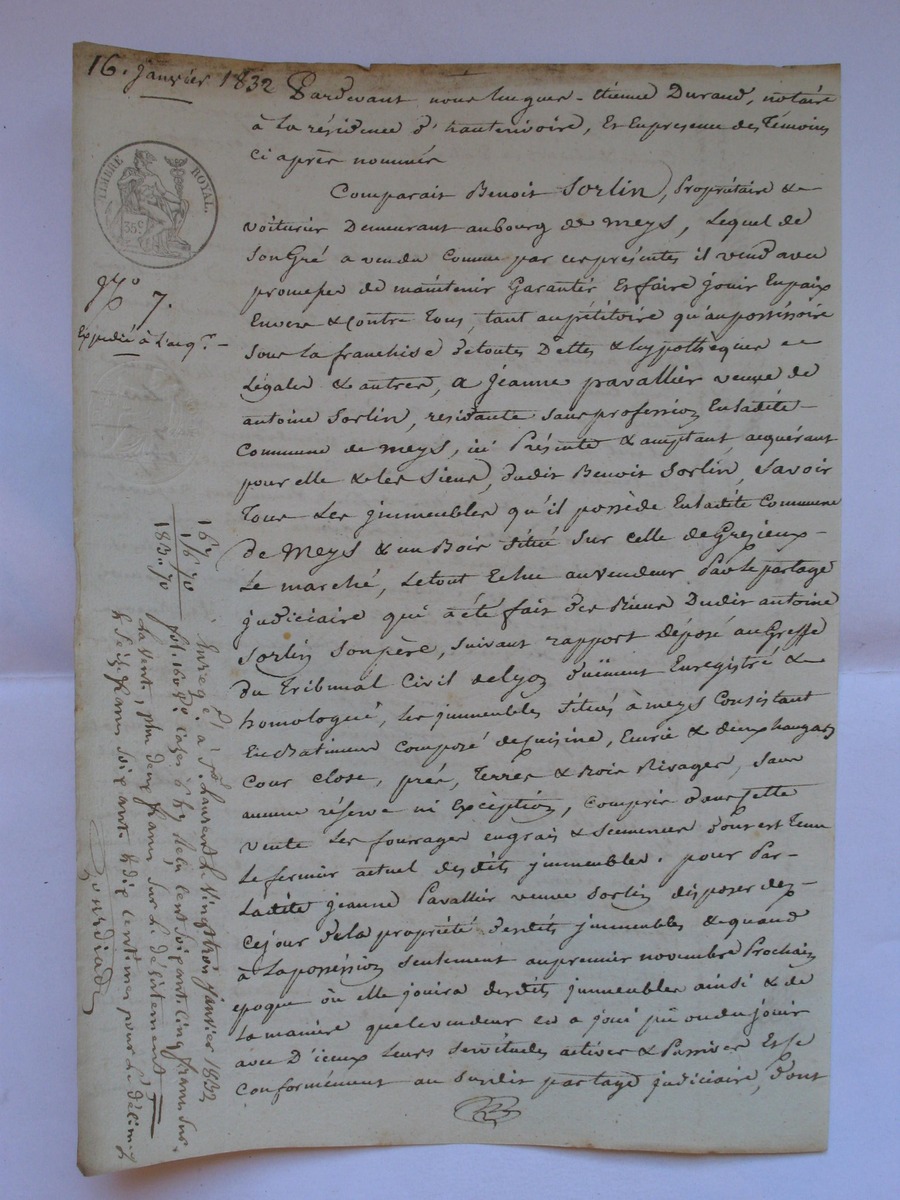 16. janvier 1832
Pardevant nous Jacques-Etienne Durand, notaire
à La résidence d'hauterivoire, Et En présence des Témoins
Ci après nommés
Comparait Benoit Sorlin, Propriétaire &
voiturier Demeurant au bourg de Meys, Lequel de
Son Gré a vendu Comme par ces présentes il vend avec
promesse de maintenir Garantir Et faire jouir En paix
Envers & Contre Tous, tant au pétitoire qu'au possessoire
Sous La franchise de toutes Dettes & hypothèques
Légales & autres, a jeanne pavallier veuve de
antoine Sorlin, résidante Sans profession En Ladite
Commune de Meys, ici Présente & acceptant, acquérant
pour elle & les Siens, dudit Benoit Sorlin, Savoir
Tous Les jmmeubles qu'il possède En Ladite Commune
De Meys & un Bois Situé Sur celle de Grezieux-
Le marché, Le tout Echu au vendeur Par Le partage
judiciaire qui a été fait des Biens Dudit antoine
Sorlin Son père, Suivant rapport déposé au Greffe
du Tribunal Civil de Lyon duëment Enregistré &
homologué, Les jmmeubles Situés à meys Consistant
En Batiments Composé de Cuisine, Ecurie & deux hangars
Cour close, préé, Terres & Bois Rivages, Sans
aucune réserve ni Exception, Compris dans Cette
vente Les fourrages engrais & Semences dont est Tenu
Le fermier actuel desdits jmmeubles. pour Par
Ladite jeanne Pavallier veuve Sorlin disposer dez-
Ce jour de la propriété desdits jmmeubles & quand
à La possession Seulement au premier novembre Prochain
époque où elle jouira desdits jmmeubles ainsi & de
La maniere que le vendeur en a joui pû ou du jouir
avec D'iceux Leurs Servitudes actives & Passives Et Se
Conformément au Susdit partage judiciaire, dont
TIMBRE ROYAL.
35c
7.
Expédié à L'acqr.
167
16 70
183. 70
Enregé. à St. Laurent Le Vingt trois janvier 1832
fol. 160 Vo. cases 6 & 7 Reçu Cent Soixante Cinq francs Sur
La vente, plus deux francs Sur Le désistement
& Seize francs Soixante & dix centimes pour Le décime